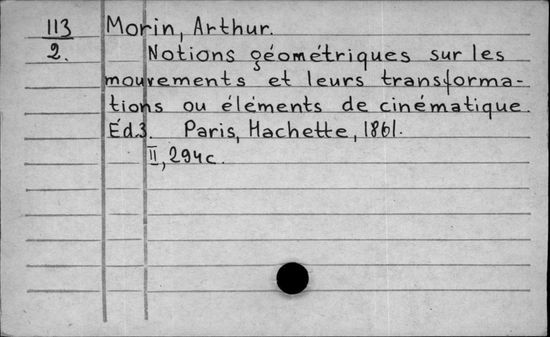 113 Morin, Arthur.
2. Notions géométriques sur les
mouvements et leurs transforma-
tions ou éléments de cinématique.
Éd.3. Paris, Hachette, 1861.
II, 294c.